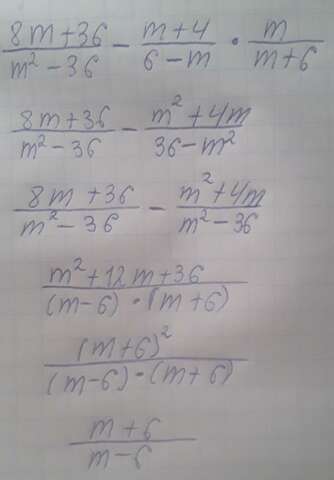 (8m+36)/(m² - 36) - (m+4)/(6-m) · m/(m+6)
(8m+36)/(m² - 36) - (m²+4m)/(36-m²)
(8m+36)/(m² - 36) - (m²+4m)/(m²-36)
(m²+12m+36)/((m-6)·(m+6))
(m+6)²/((m-6)·(m+6))
(m+6)/(m-6)